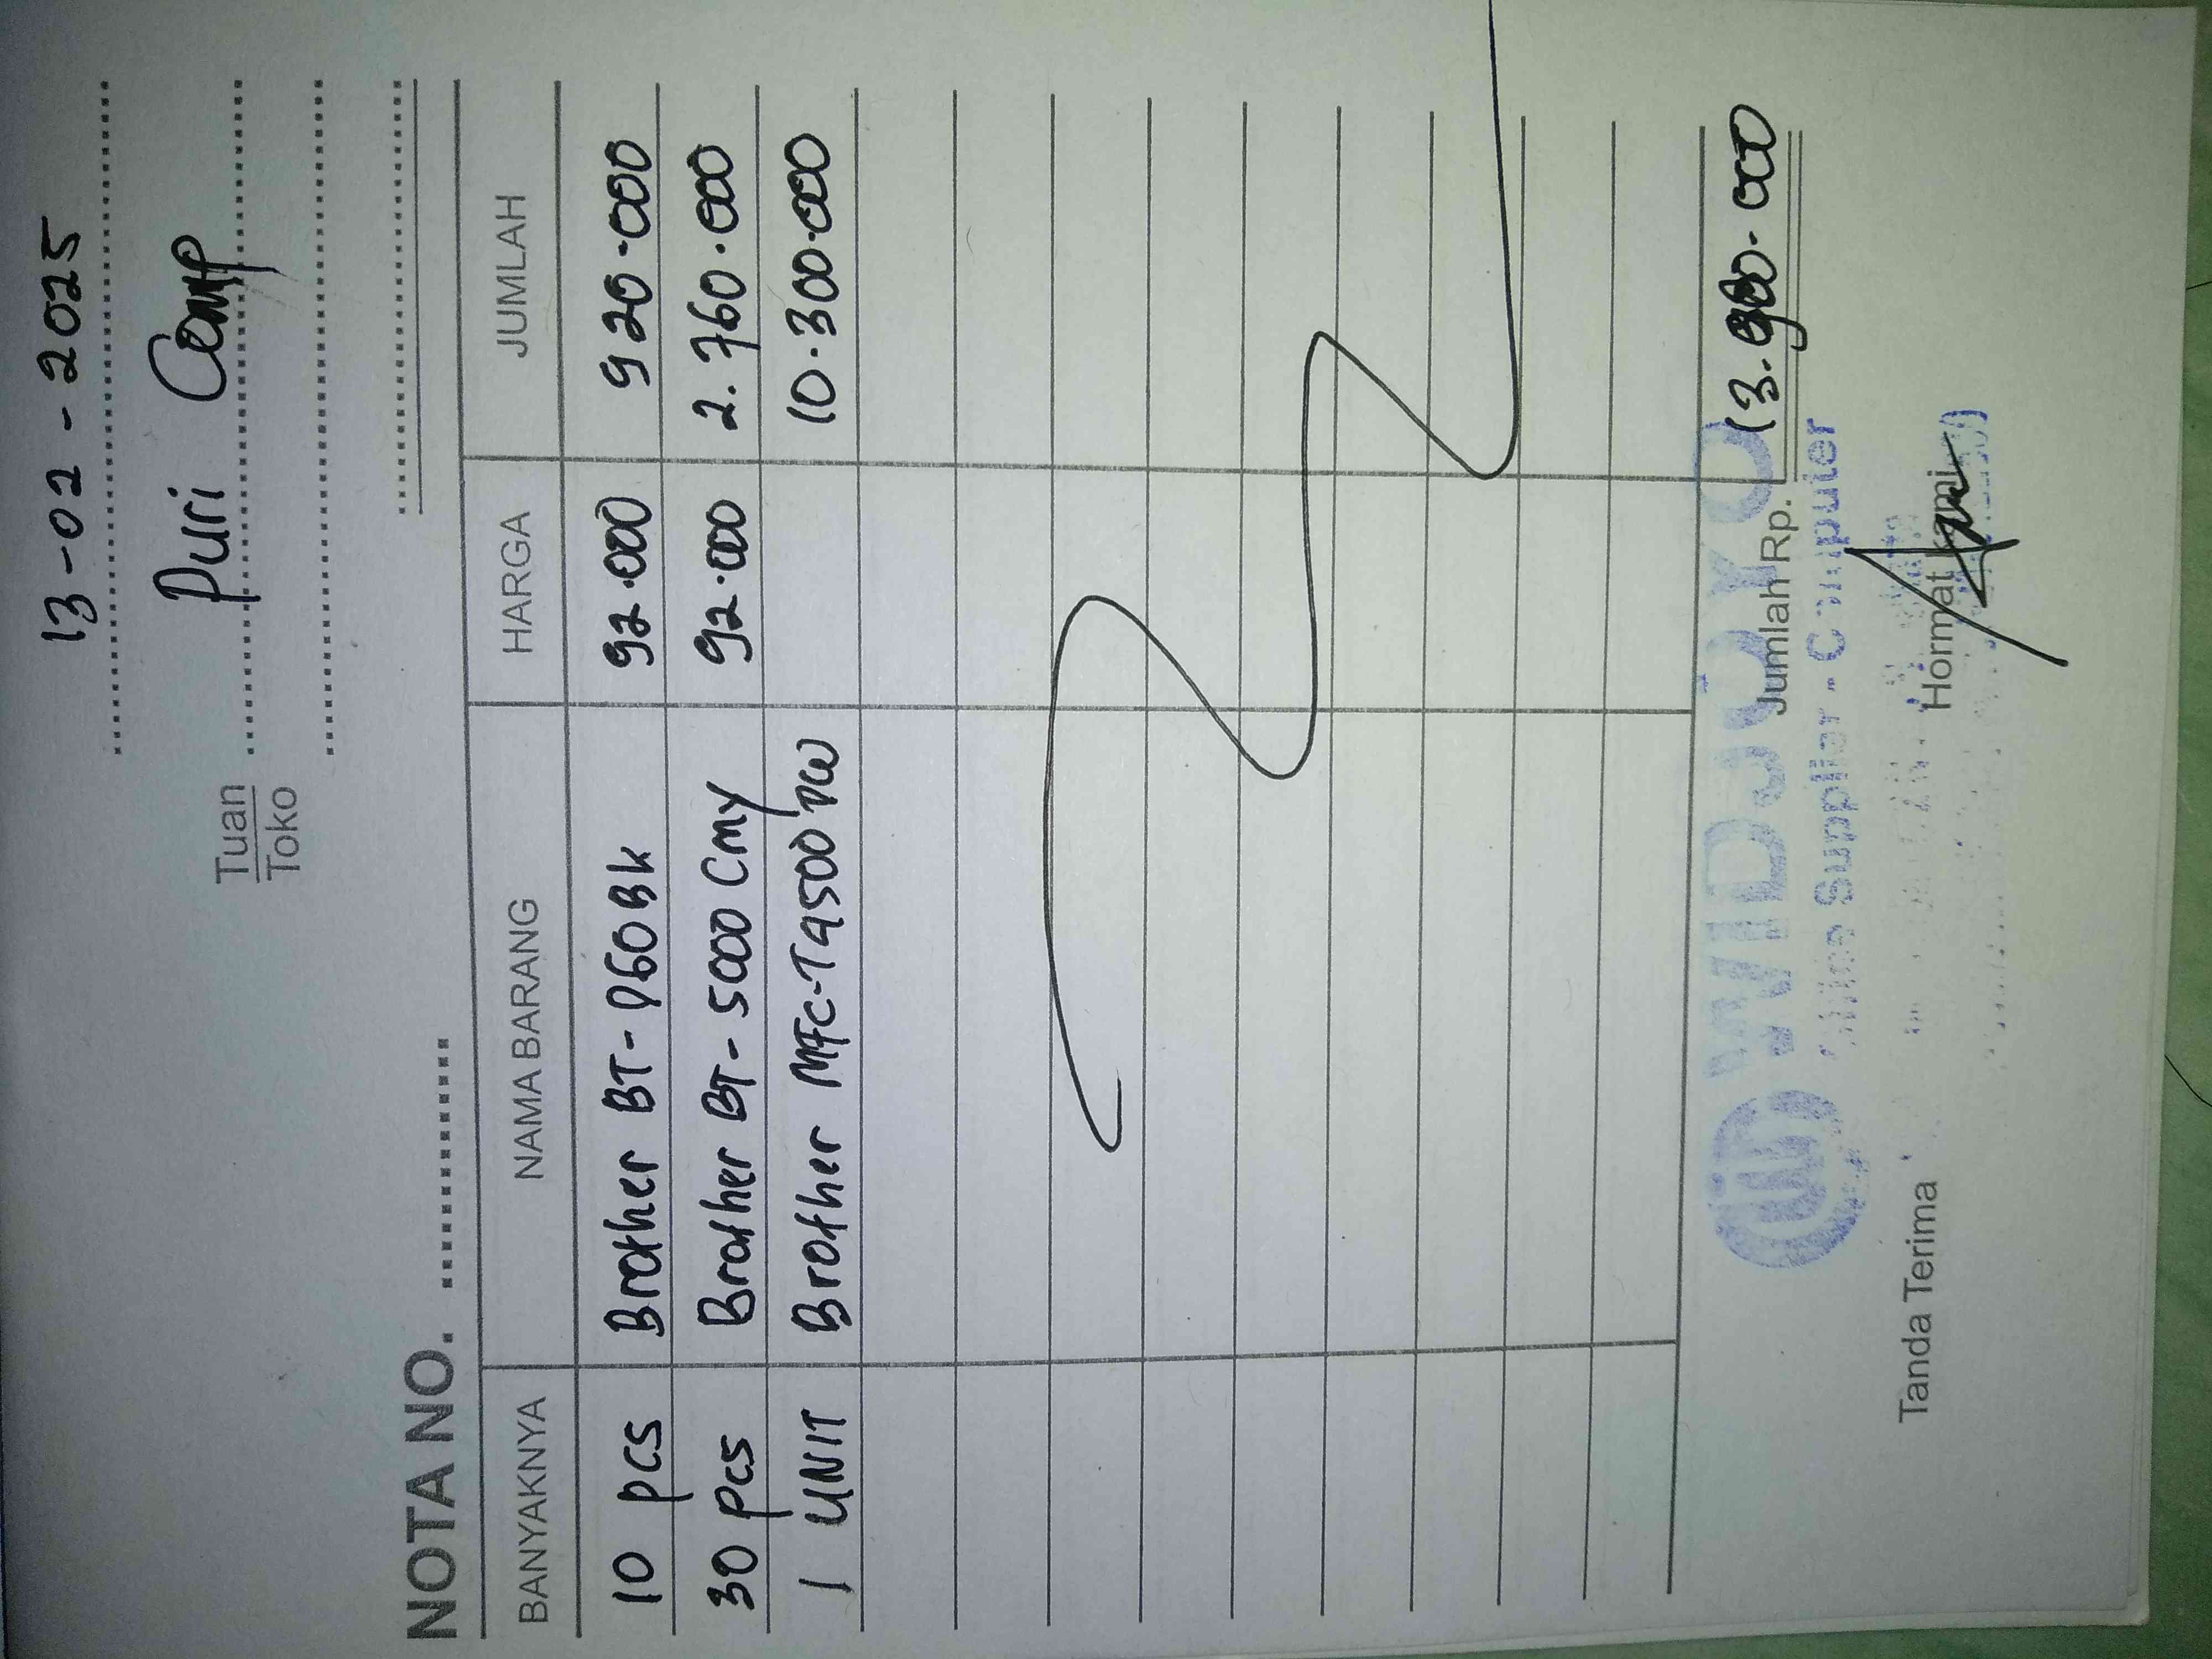 13-02-2025
Tuan
Toko
Puri Comp
NOTA NO.
BANYAKNYA NAMA BARANG HARGA JUMLAH
10 pcs Brother BT-D60Bk 92.000 920.000
30 pcs Brother BT-5000 Cmy 92.000 2.760.000
1 UNIT Brother MFC-T4500DW 10.300.000
Jumlah Rp. 13.980.000
WIDJOYO
Supplier - Computer
Tanda Terima Hormat kami